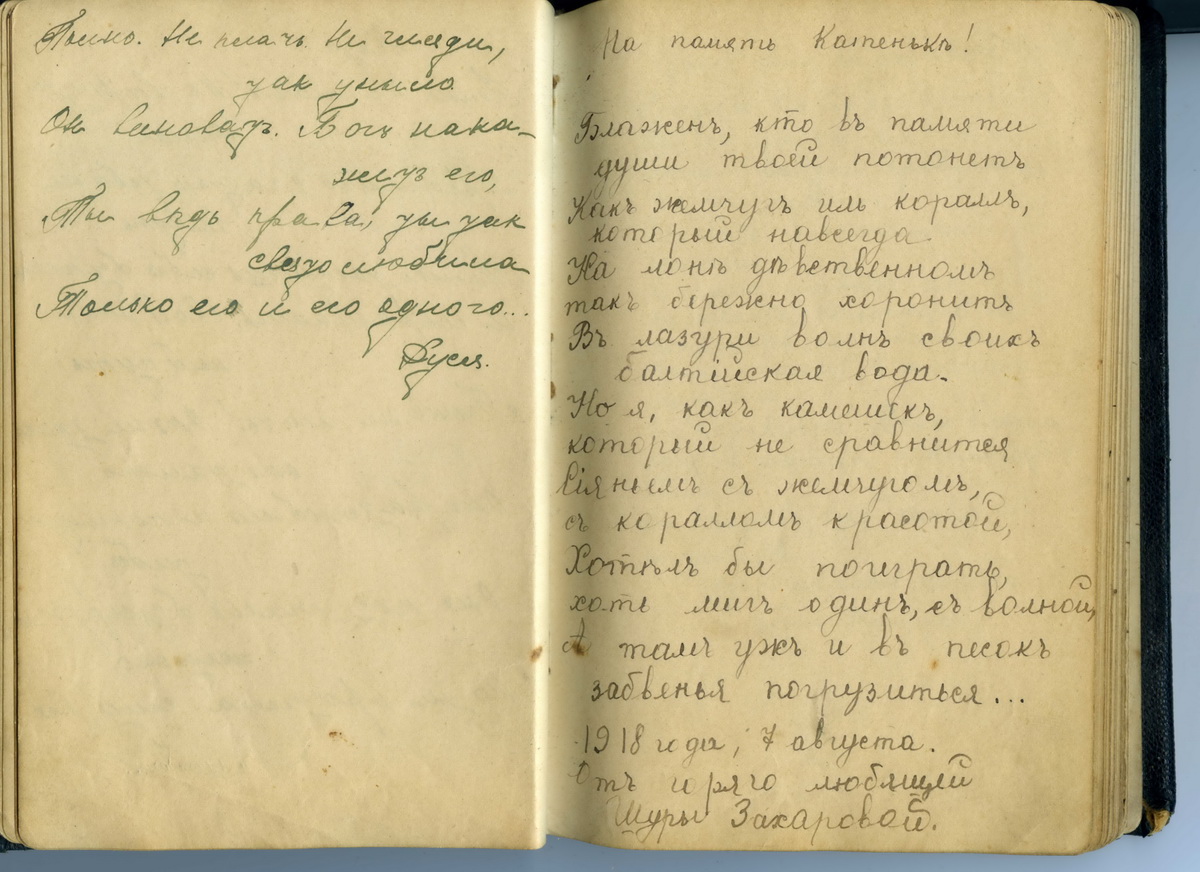 Полно. Не плачь. Не гляди,
так уныло
Он виноватъ. Богъ нака-
жетъ его,
Ты вѣдь права, ты такъ
свято любила
Только его и его одного...
Дуся.
На память Катенькѣ!
Блаженъ, кто въ памяти
души твоей потонетъ
Какъ жемчугъ иль кораллъ,
который навсегда
На лонѣ дѣвственномъ
такъ бережно хоронитъ
Въ лазури волнъ своихъ
балтійская вода.
Но я, какъ камешекъ,
который не сравнится
Сіяньемъ съ жемчугомъ,
съ коралломъ красотой,
Хотѣлъ бы поиграть,
хоть мигъ одинъ, съ волной,
А тамъ ужъ и въ песокъ
забвенья погрузиться...
1918 года, 7 августа.
Отъ горяго любящей
Шуры Захаровой.